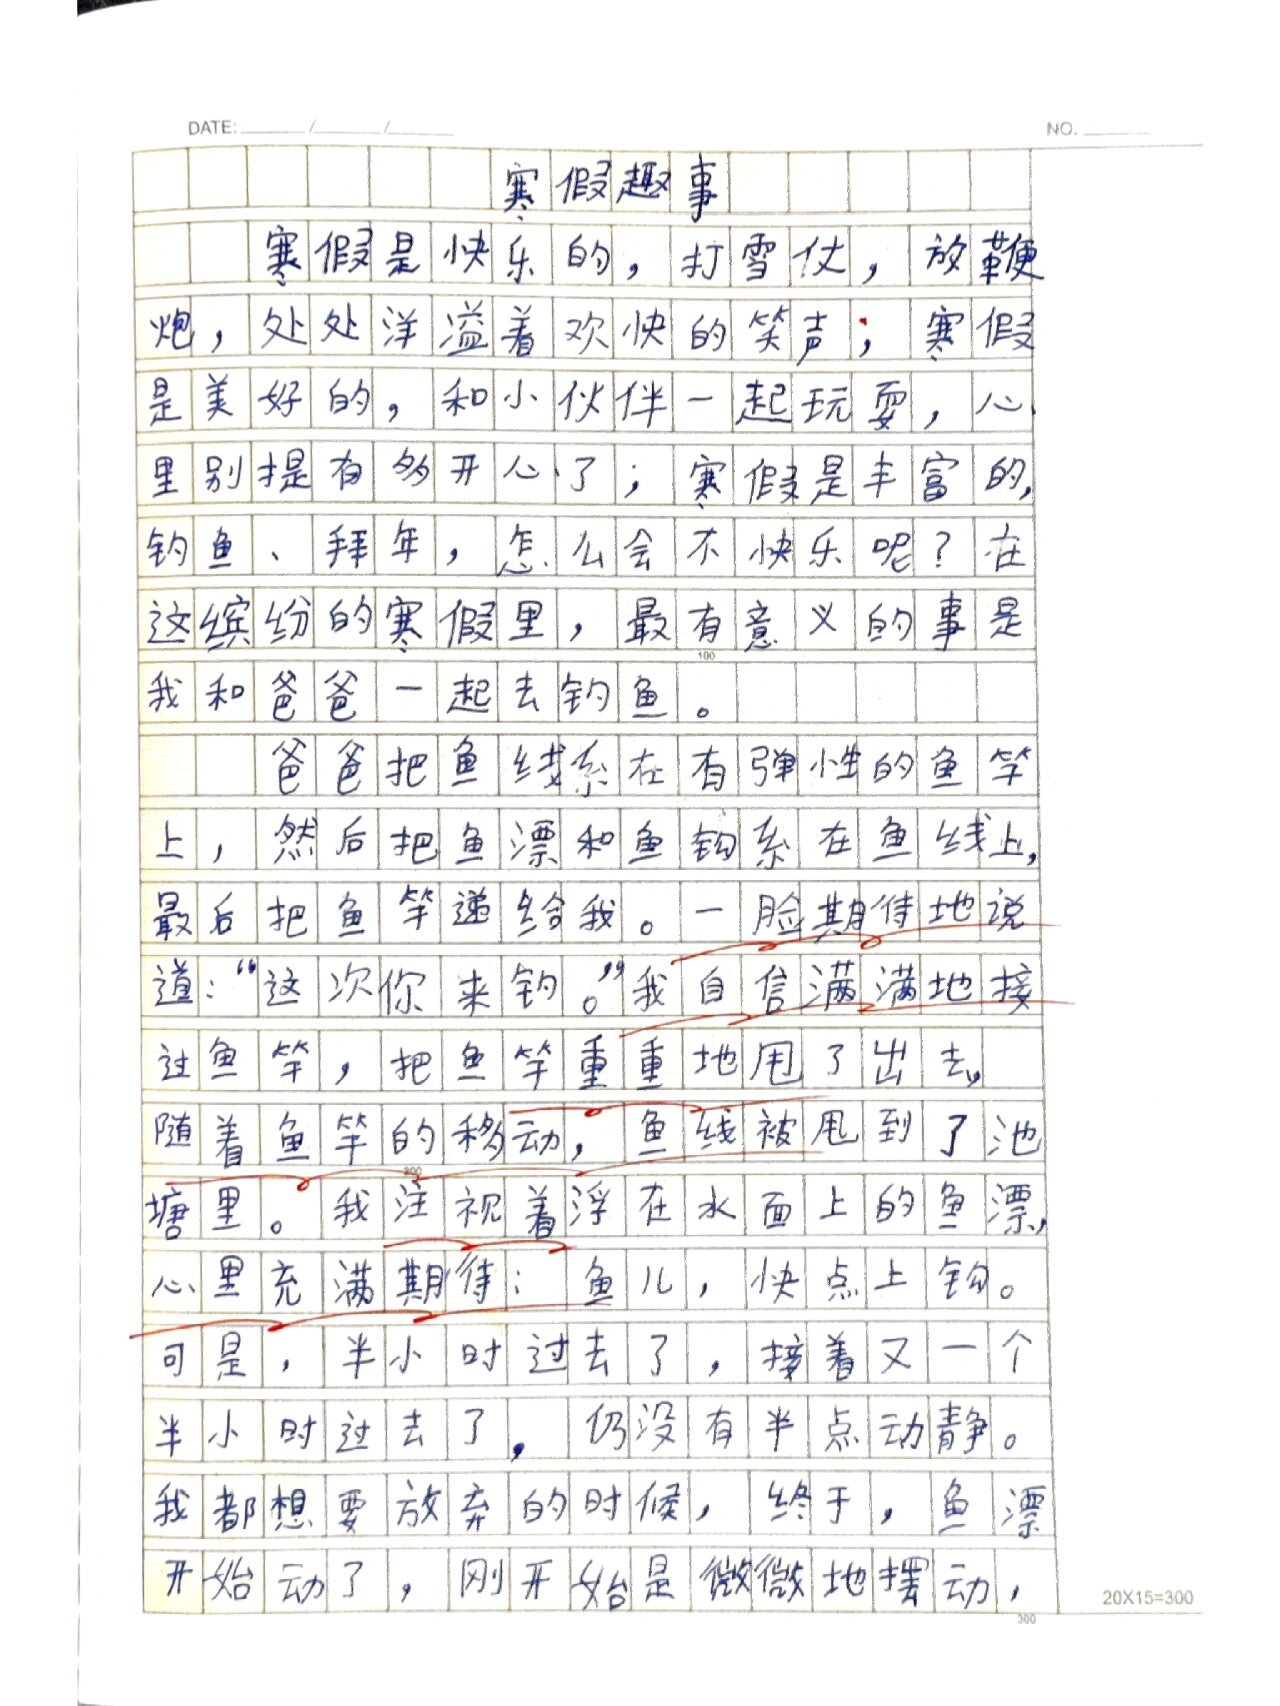 DATE: ____/____/____ NO. ____
寒假趣事
寒假是快乐的，打雪仗，放鞭
炮，处处洋溢着欢快的笑声；寒假
是美好的，和小伙伴一起玩耍，心
里别提有多开心了；寒假是丰富的，
钓鱼、拜年，怎么会不快乐呢？在
这缤纷的寒假里，最有意义的事是
100
我和爸爸一起去钓鱼。
爸爸把鱼线系在有弹性的鱼竿
上，然后把鱼漂和鱼钩系在鱼线上，
最后把鱼竿递给我。一脸期待地说
道：“这次你来钓。”我自信满满地接
过鱼竿，把鱼竿重重地甩了出去，
随着鱼竿的移动，鱼线被甩到了池
200
塘里。我注视着浮在水面上的鱼漂，
心里充满期待：鱼儿，快点上钩。
可是，半小时过去了，接着又一个
半小时过去了，仍没有半点动静。
我都想要放弃的时候，终于，鱼漂
开始动了，刚开始是微微地摆动，
20X15=300
300